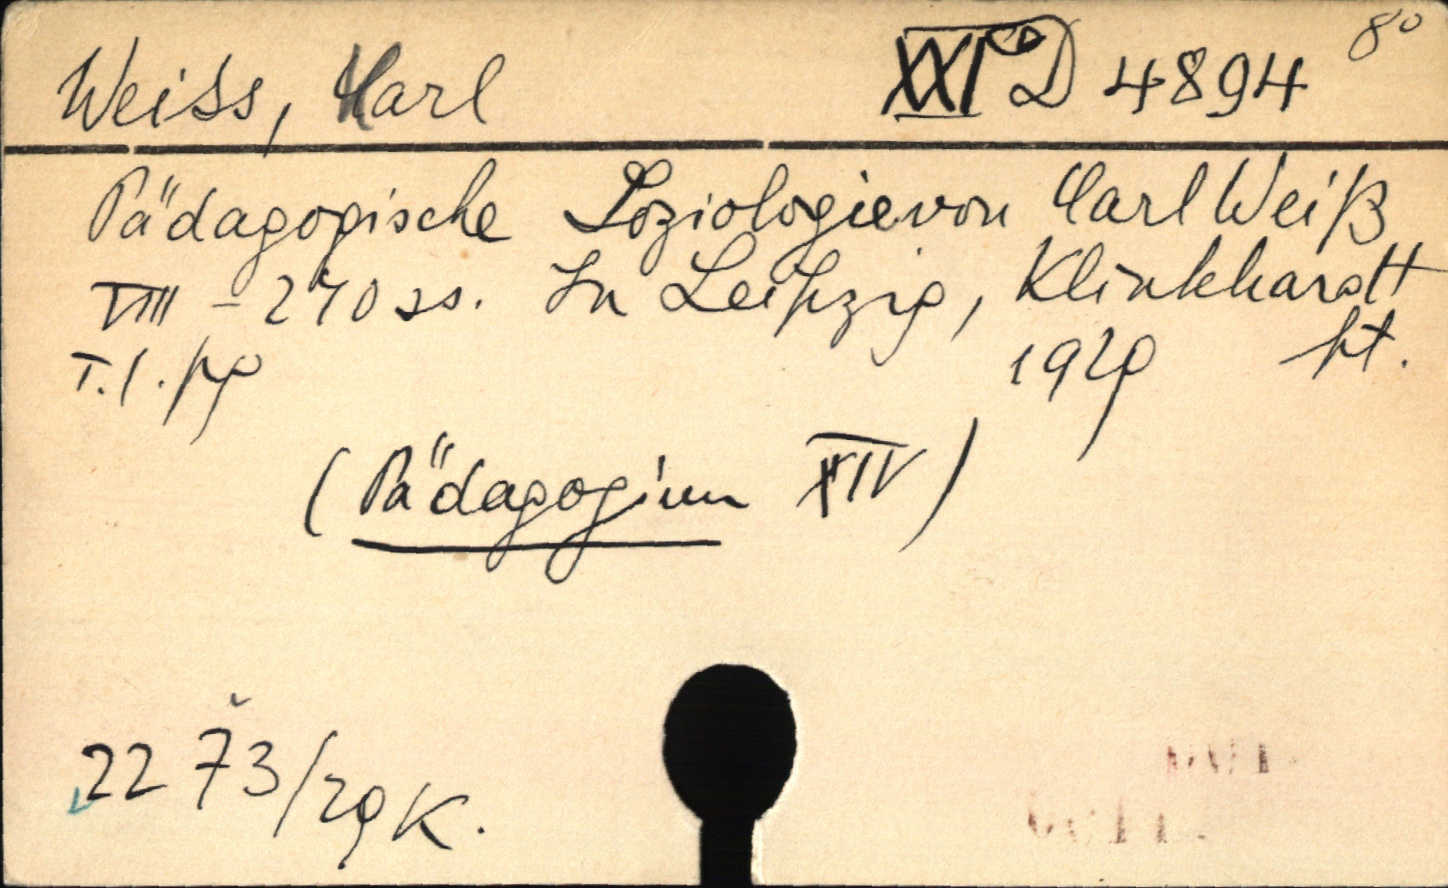 Weiss, Carl XXI D 4894 8°
Pädagogische Soziologie von Carl Weiß
VIII - 270 ss. In Leipzig, Klinkhardt
T.1. pp 1929 ht.
(Pädagogium XIV)
2273/29 K.